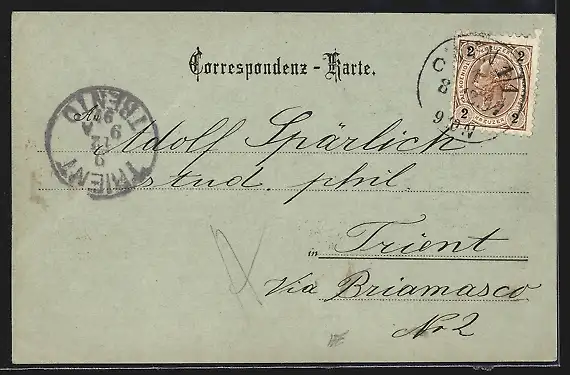 Correspondenz-Karte.
An Adolf Spärlich
stud. phil.
in Trient
Via Briamasco
No 2
TRIENT
TRENTO
2
2
2
2
KREUZER